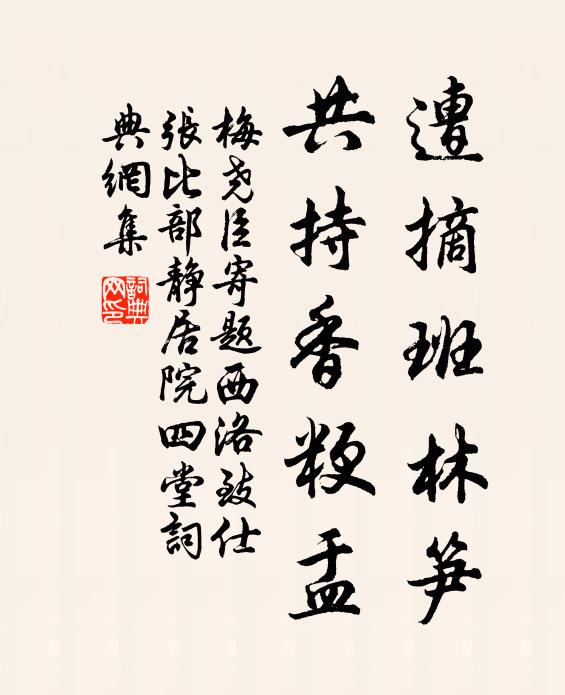 遭摘班林笋
共持香粳盂
梅尧臣寄题西洛致仕
張比部静居院四堂詞
典網集
詞典网印